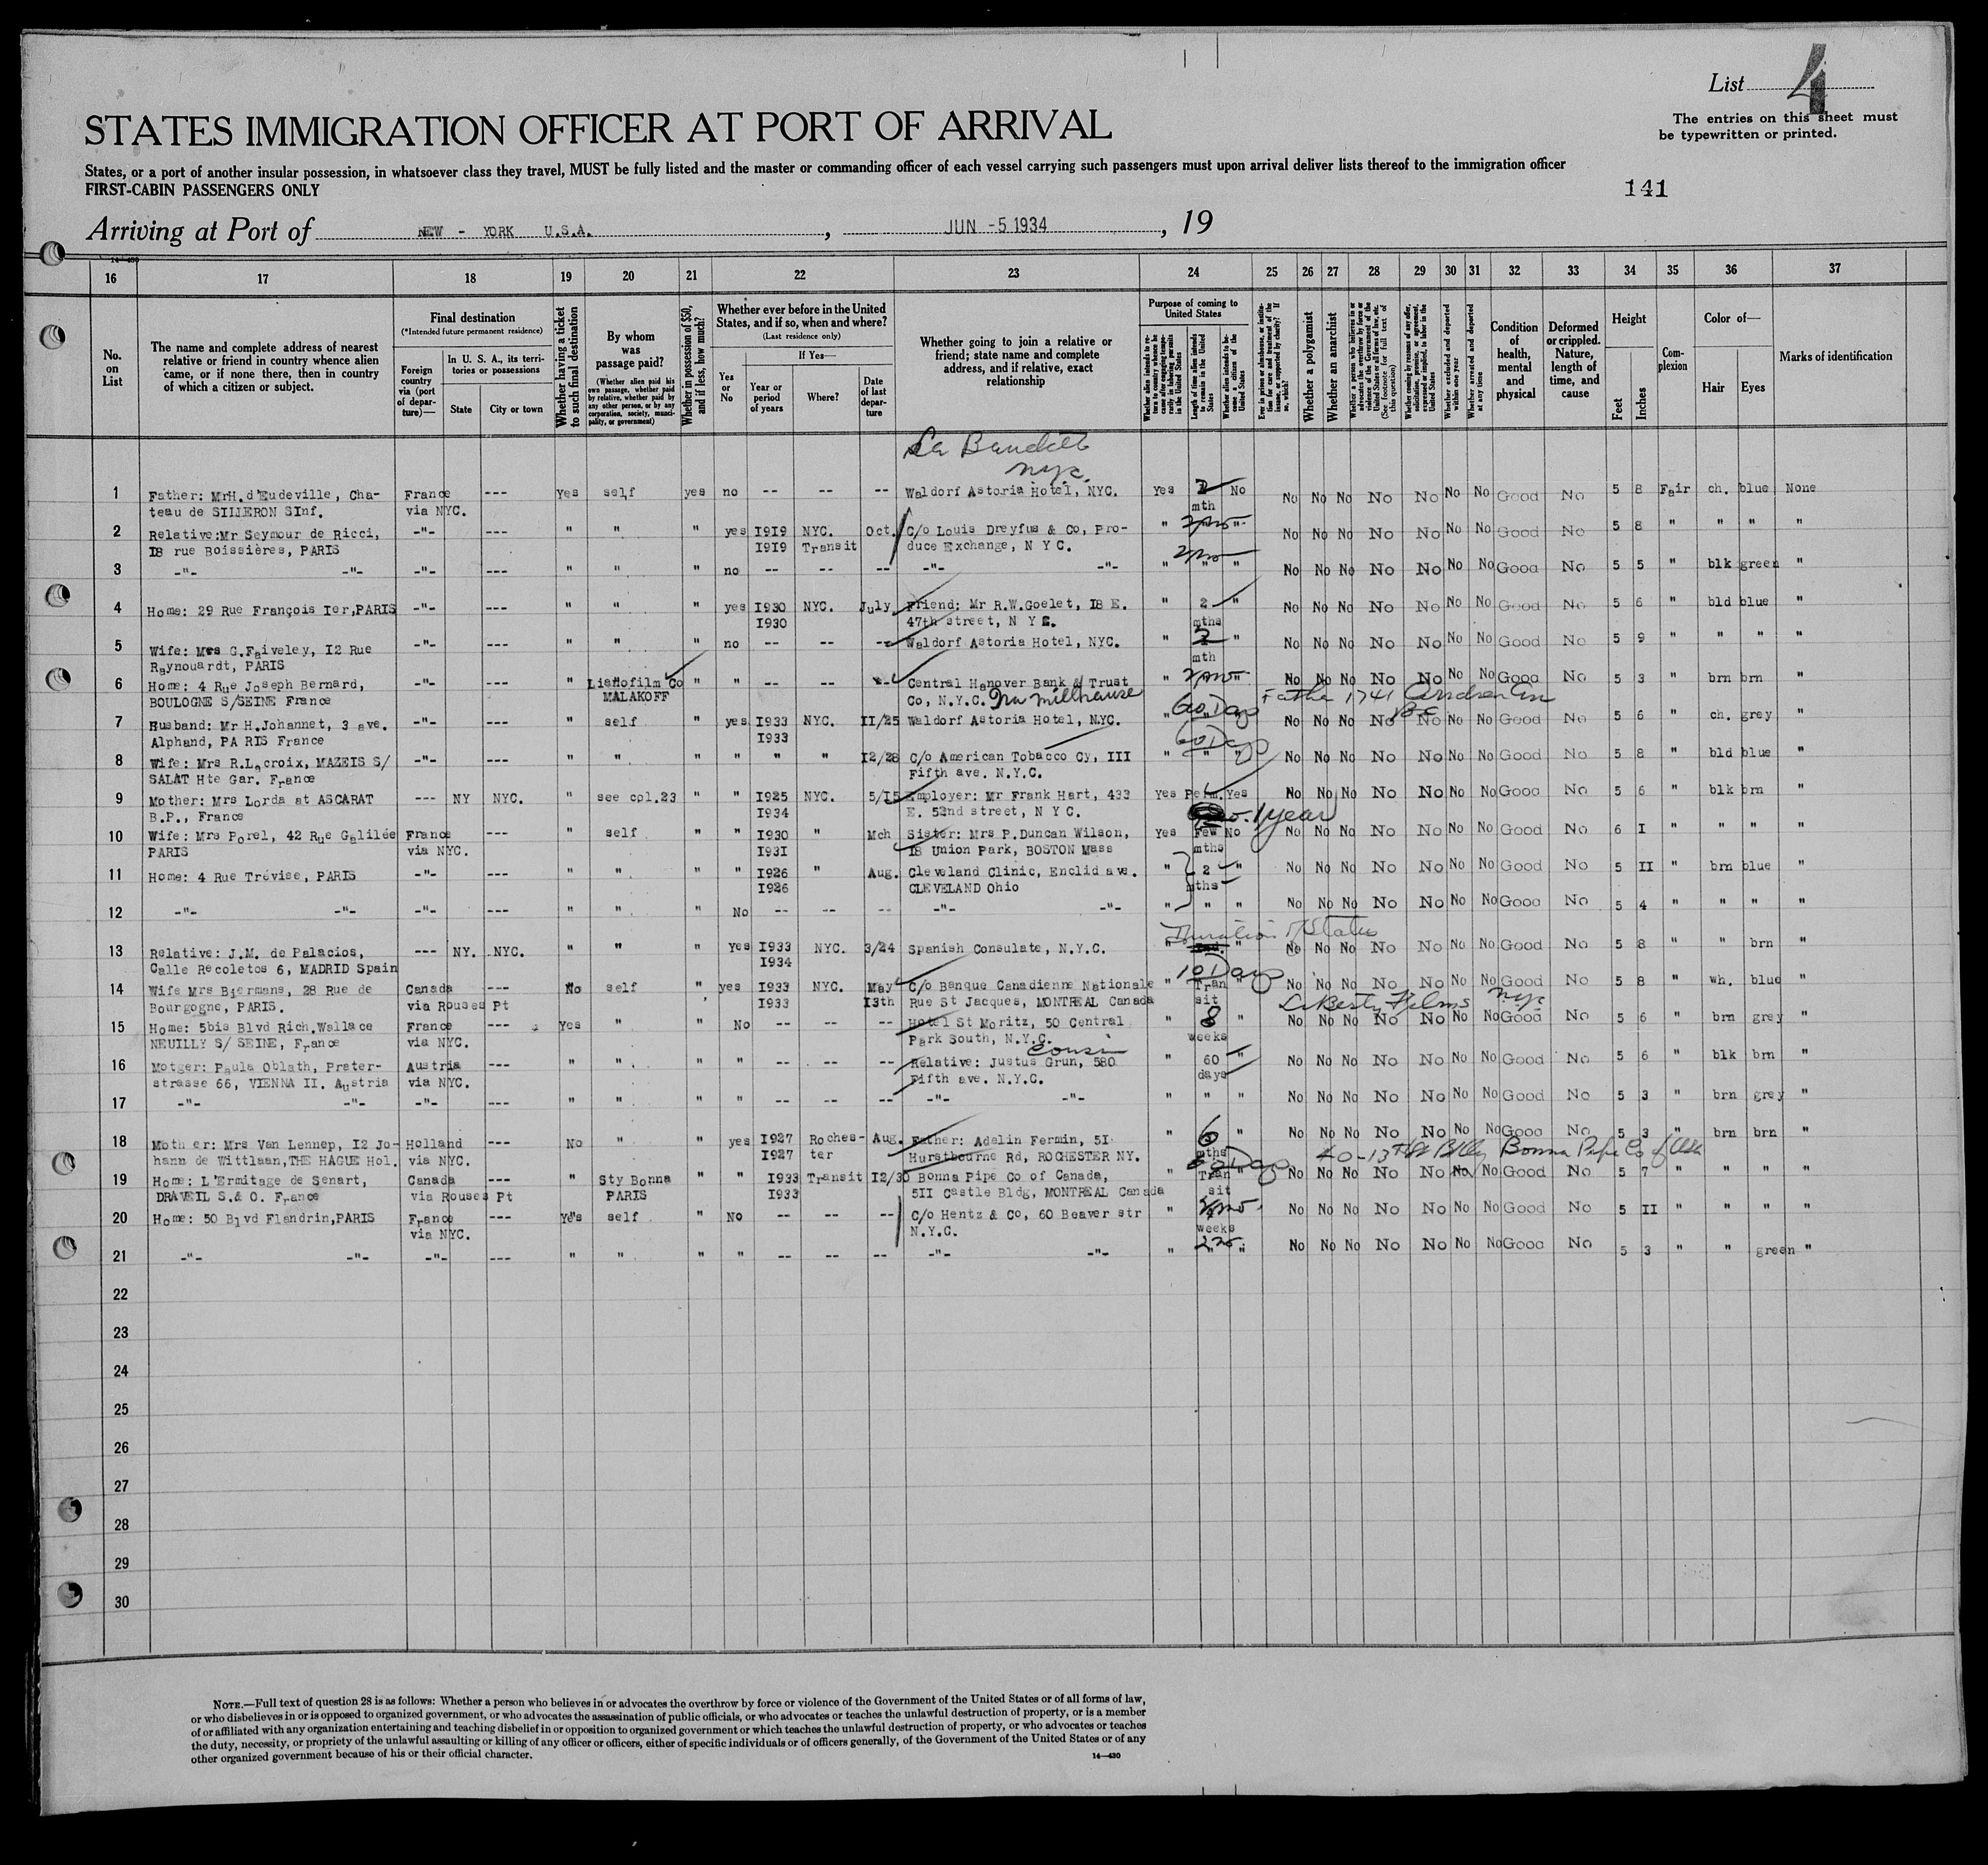 List 4
The entries on this sheet must
be typewritten or printed.
STATES IMMIGRATION OFFICER AT PORT OF ARRIVAL
States, or a port of another insular possession, in whatsoever class they travel, MUST be fully listed and the master or commanding officer of each vessel carrying such passengers must upon arrival deliver lists thereof to the immigration officer
FIRST-CABIN PASSENGERS ONLY
141
Arriving at Port of NEW - YORK U.S.A. , JUN -5 1934 , 19
16 17 18 19 20 21 22 23 24 25 26 27 28 29 30 31 32 33 34 35 36 37
No. on List
The name and complete address of nearest relative or friend in country whence alien came, or if none there, then in country of which a citizen or subject.
Final destination
(*Intended future permanent residence)
Foreign country via (port of departure)—
In U. S. A., its territories or possessions
State
City or town
Whether having a ticket to such final destination
By whom was passage paid?
(Whether alien paid his own passage, whether paid by relative, whether paid by any other person, or by any corporation, society, municipality, or government)
Whether in possession of $50, and if less, how much?
Whether ever before in the United States, and if so, when and where?
(Last residence only)
Yes or No
If Yes—
Year or period of years
Where?
Date of last departure
Whether going to join a relative or friend; state name and complete address, and if relative, exact relationship
Purpose of coming to United States
Length of time alien intends to remain in the United States
Whether alien intends to become a citizen of the United States
Whether a polygamist
Whether an anarchist
Condition of health, mental and physical
Deformed or crippled. Nature, length of time, and cause
Height
Feet
Inches
Complexion
Color of—
Hair
Eyes
Marks of identification
NYC.
1 Father: MrH. d'Eudeville, Cha- France --- Yes self yes no -- -- -- Waldorf Astoria Hotel, NYC. Yes 2 No No No No No No No No Good No 5 8 Fair ch. blue None
teau de SILLERON SInf. via NYC. mth
2 Relative:Mr Seymour de Ricci, -"- --- " " " yes I9I9 NYC. Oct. C/o Louis Dreyfus & Co, Pro- " 2 mo " No No No No No No No Good No 5 8 " " " "
I8 rue Boissières, PARIS I9I9 Transit duce Exchange, N Y C.
3 -"- -"- -"- --- " " " no -- -- -- -"- -"- " 2 mo " " No No No No No No No Good No 5 5 " blk green "
4 Home: 29 Rue François Ier,PARIS -"- --- " " " yes I930 NYC. July Friend: Mr R.W.Goelet, I8 E. " 2 " No No No No No No No Good No 5 6 " bld blue "
I930 47th street, N Y C. mths
5 Wife: Mrs G.Faiveley, I2 Rue -"- --- " " " no -- -- -- Waldorf Astoria Hotel, NYC. " 2 " No No No No No No No Good No 5 9 " " " "
Raynouardt, PARIS mth
6 Home: 4 Rue Joseph Bernard, -"- --- " Lianofilm Co " " -- -- -- Central Hanover Bank & Trust " 2 mo " No No No No No No No Good No 5 3 " brn brn "
BOULOGNE S/SEINE France MALAKOFF Co, N.Y.C.
60 Days
7 Husband: Mr H.Johannet, 3 ave. -"- --- " self " yes I933 NYC. II/25 Waldorf Astoria Hotel, NYC. " " No No No No No No No Good No 5 6 " ch. grey "
Alphand, PA RIS France I933
60 Days
8 Wife: Mrs R.Lacroix, MAZEIS S/ -"- --- " " " " " " I2/28 C/o American Tobacco Cy, III " " " No No No No No No No Good No 5 8 " bld blue "
SALAT Hte Gar. France Fifth ave. N.Y.C.
9 Mother: Mrs Lorda at ASCARAT --- NY NYC. " see col.23 " " I925 NYC. 5/I5 Employer: Mr Frank Hart, 433 Yes Perm. Yes No No No No No No No Good No 5 6 " blk brn "
B.P., France I934 E. 52nd street, N Y C. 1 year
10 Wife: Mrs Porel, 42 Rue Galilée France --- " self " " I930 " Mch Sister: Mrs P.Duncan Wilson, Yes Few No No No No No No No No Good No 6 I " " " "
PARIS via NYC. I93I I8 Union Park, BOSTON Mass mths
11 Home: 4 Rue Trévise, PARIS -"- --- " " " " I926 " Aug. Cleveland Clinic, Enclid ave. " 2 " No No No No No No No Good No 5 II " brn blue "
I926 CLEVELAND Ohio mths
12 -"- -"- -"- --- " " " No -- -- -- -"- -"- " " " No No No No No No No Good No 5 4 " " " "
Duration of Status
13 Relative: J.M. de Palacios, --- NY. NYC. " " " Yes I933 NYC. 3/24 Spanish Consulate, N.Y.C. " " No No No No No No No Good No 5 8 " " brn "
Calle Recoletos 6, MADRID Spain I934
10 Days
14 Wife Mrs Biermans, 28 Rue de Canada --- No self " yes I933 NYC. May C/o Banque Canadienne Nationale " Tran " No No No No No No No Good No 5 8 " wh. blue "
Bourgogne, PARIS. via Rouses Pt I933 I3th Rue St Jacques, MONTREAL Canada sit
Liberty Films NYC
15 Home: 5bis Blvd Rich.Wallace France --- Yes " " No -- -- -- Hotel St Moritz, 50 Central " 8 " No No No No No No No Good No 5 6 " brn grey "
NEUILLY S/ SEINE, France via NYC. Park South, N.Y.C. weeks
Cousin
16 Motger: Paula Oblath, Prater- Austria --- " " " " -- -- -- Relative: Justus Grun, 580 " 60 " No No No No No No No Good No 5 6 " blk brn "
strasse 66, VIENNA II. Austria via NYC. Fifth ave. N.Y.C. days
17 -"- -"- -"- --- " " " " -- -- -- -"- -"- " " " No No No No No No No Good No 5 3 " brn grey "
18 Moth er: Mrs Van Lennep, I2 Jo- Holland --- No " " yes I927 Roches- Aug. Father: Adelin Fermin, 5I " 6 " No No No No No No No Good No 5 3 " brn brn "
hann de Wittlaan,THE HAGUE Hol. via NYC. I927 ter Hurstbourne Rd, ROCHESTER NY. mths
60 Days Bonna Pipe Co of
19 Home: L'Ermitage de Senart, Canada --- " Sty Bonna " " I933 Transit I2/30 Bonna Pipe Co of Canada, " Tran " No No No No No No No Good No 5 7 " " " "
DRAVEIL S.& O. France via Rouses Pt PARIS I933 5II Castle Bldg, MONTREAL Canada sit
20 Home: 50 Blvd Flandrin,PARIS France --- Yes self " No -- -- -- C/o Hentz & Co, 60 Beaver str " " No No No No No No No Good No 5 II " " " "
via NYC. N.Y.C. weeks
21 -"- -"- -"- --- " " " " -- -- -- -"- -"- " " " No No No No No No No Good No 5 3 " " green "
22
23
24
25
26
27
28
29
30
NOTE.—Full text of question 28 is as follows: Whether a person who believes in or advocates the overthrow by force or violence of the Government of the United States or of all forms of law,
or who disbelieves in or is opposed to organized government, or who advocates the assassination of public officials, or who advocates or teaches the unlawful destruction of property, or is a member
of or affiliated with any organization entertaining and teaching disbelief in or opposition to organized government or which teaches the unlawful destruction of property, or who advocates or teaches
the duty, necessity, or propriety of the unlawful assaulting or killing of any officer or officers, either of specific individuals or of officers generally, of the Government of the United States or of any
other organized government because of his or their official character.
14—430